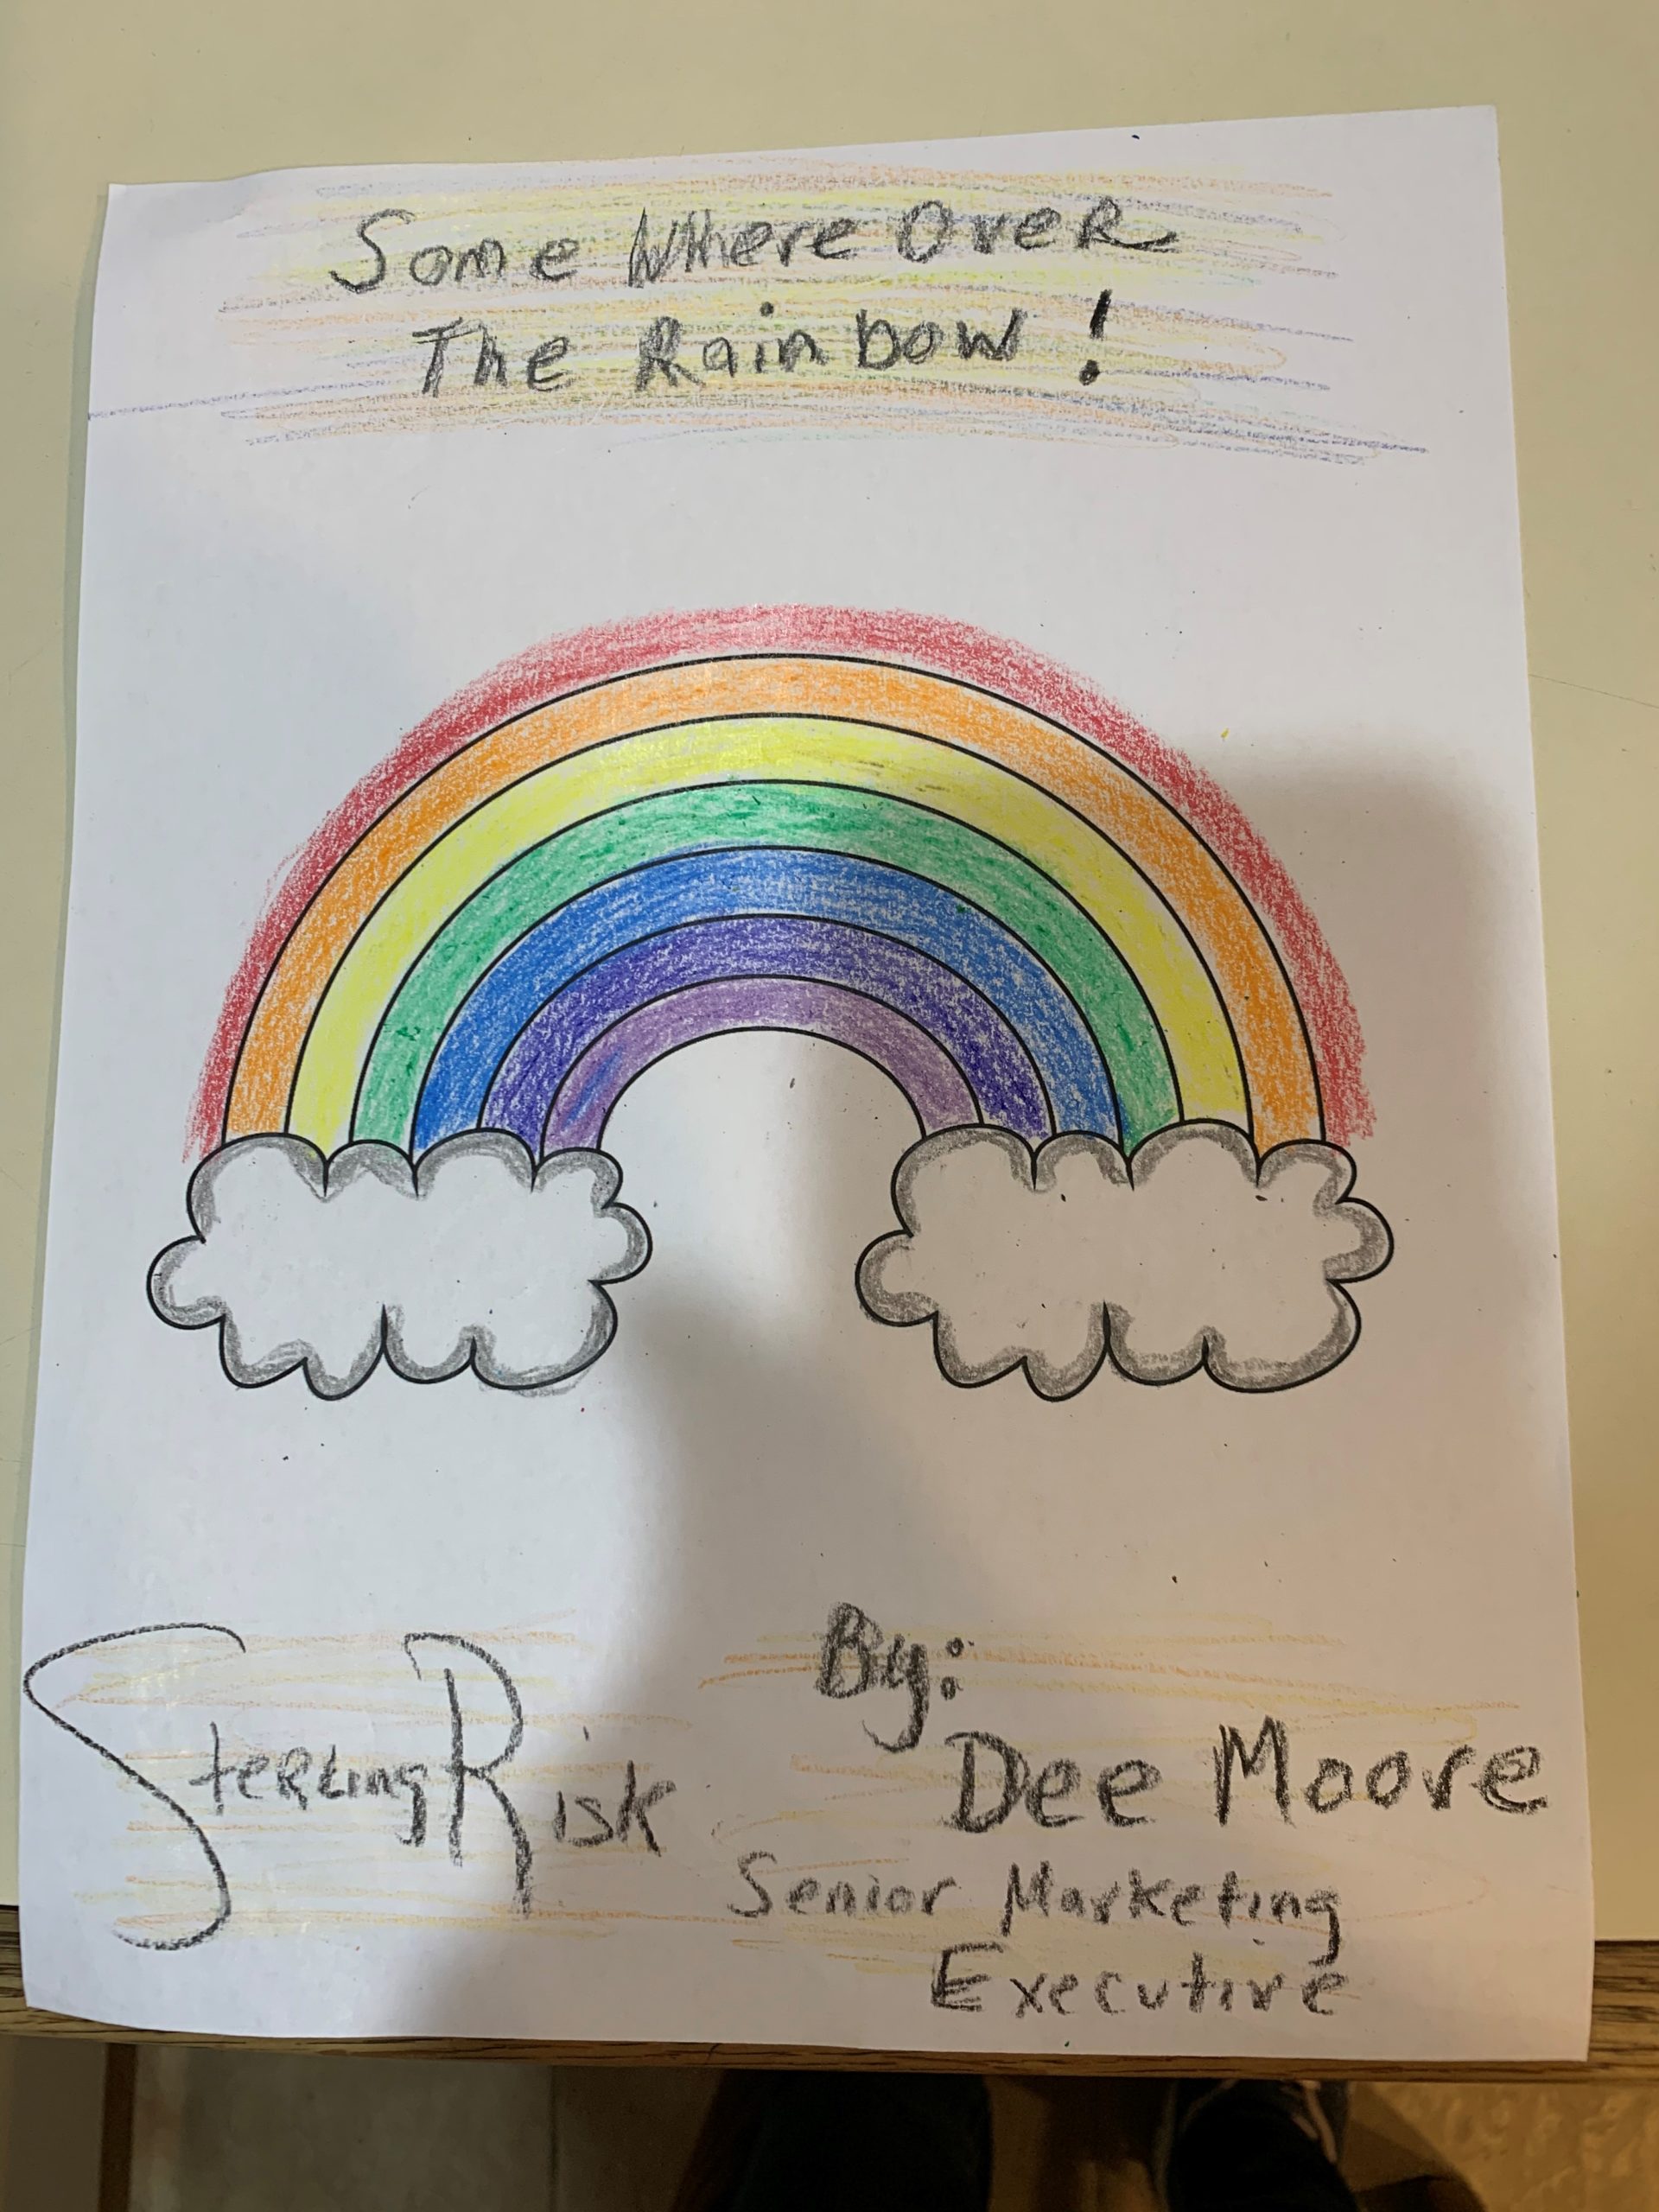 Some Where Over
The Rainbow!
Sterling Risk
By:
Dee Moore
Senior Marketing
Executive